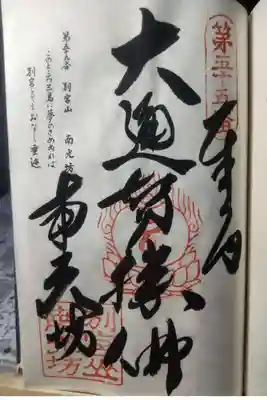 第五十五番
大通智勝佛
南光坊
別宮山
南光坊
第五十五番 別宮山 南光坊
このところ三島に夢のさめぬれば
別宮とてもおなじ垂迹